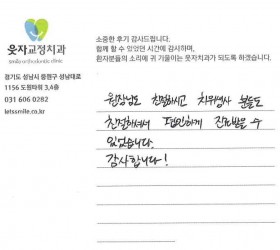 웃자교정치과
smile orthodontic clinic
경기도 성남시 중원구 성남대로
1156 도원타워 3,4층
031 606 0282
letssmile.co.kr
소중한 후기 감사드립니다.
함께 할 수 있었던 시간에 감사하며,
환자분들의 소리에 귀 기울이는 웃자치과가 되도록 하겠습니다.
원장님도 친절하시고 치위생사 분들도
친절하셔서 편안하게 진료받을 수
있었습니다.
감사합니다!